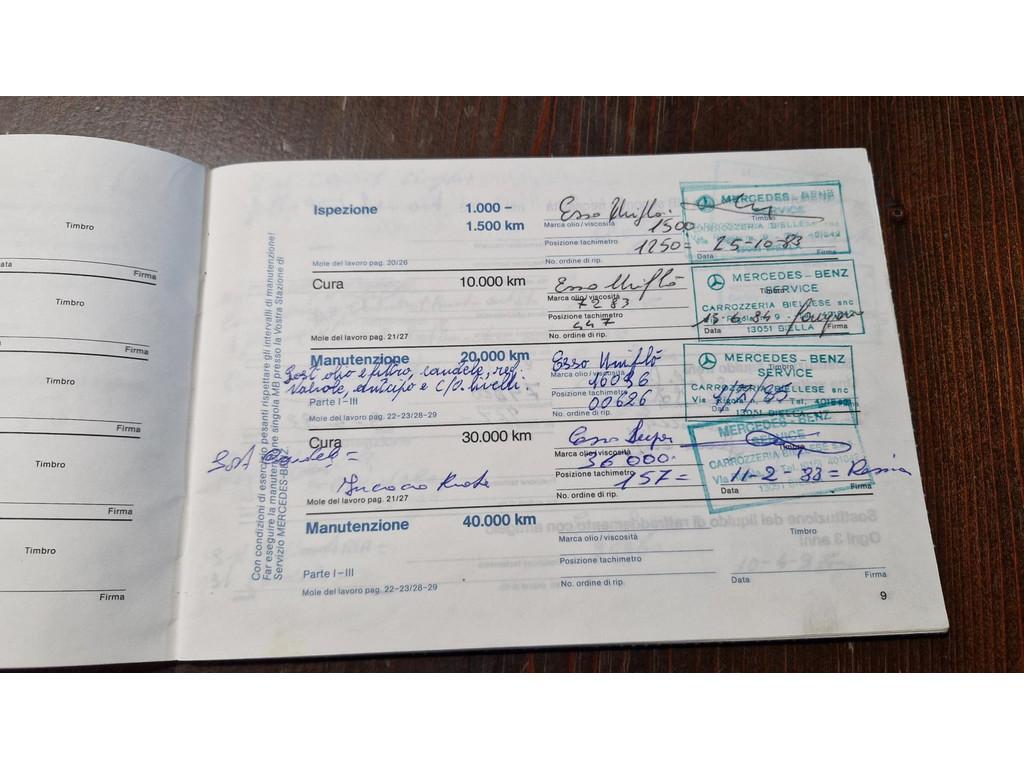 Timbro
Firma
Timbro
Firma
Timbro
Firma
Timbro
Firma
Timbro
Firma
Con condizioni di esercizio pesanti rispettare gli intervalli di manutenzione!
Far eseguire la manutenzione singola MB presso la Vostra Stazione di
Servizio MERCEDES-BENZ.
Ispezione 1.000 –
1.500 km
Esso Uniflo
Marca olio/viscosità
1500
Posizione tachimetro
1250=
No. ordine di rip.
Mole del lavoro pag. 20/26
MERCEDES - BENZ
SERVICE
Timbro
CARROZZERIA BIELLESE snc
25-10-83
Cura 10.000 km
Esso Uniflo
Marca olio/viscosità
7283
Posizione tachimetro
447
No. ordine di rip.
Mole del lavoro pag. 21/27
MERCEDES-BENZ
SERVICE
CARROZZERIA BIELLESE snc
Data Firma
13051 BIELLA
Manutenzione 20.000 km
Sost olio e filtro, candele, reg.
Valvole, anticipo e C/O. livelli.
Parte I–III
Mole del lavoro pag. 22-23/28-29
Esso Uniflo
Marca olio/viscosità
16096
Posizione tachimetro
00626
No. ordine di rip.
MERCEDES-BENZ
SERVICE
CARROZZERIA BIELLESE snc
Cura 30.000 km
Mole del lavoro pag. 21/27
Esso Super
Marca olio/viscosità
36000
Posizione tachimetro
157=
No. ordine di rip.
MERCEDES BENZ
SERVICE
Timbro
CARROZZERIA BIELLESE
11-2-
Data Firma
Manutenzione 40.000 km
Parte I–III
Mole del lavoro pag. 22–23/28–29
Marca olio/viscosità
Posizione tachimetro
No. ordine di rip.
Timbro
Data Firma
9